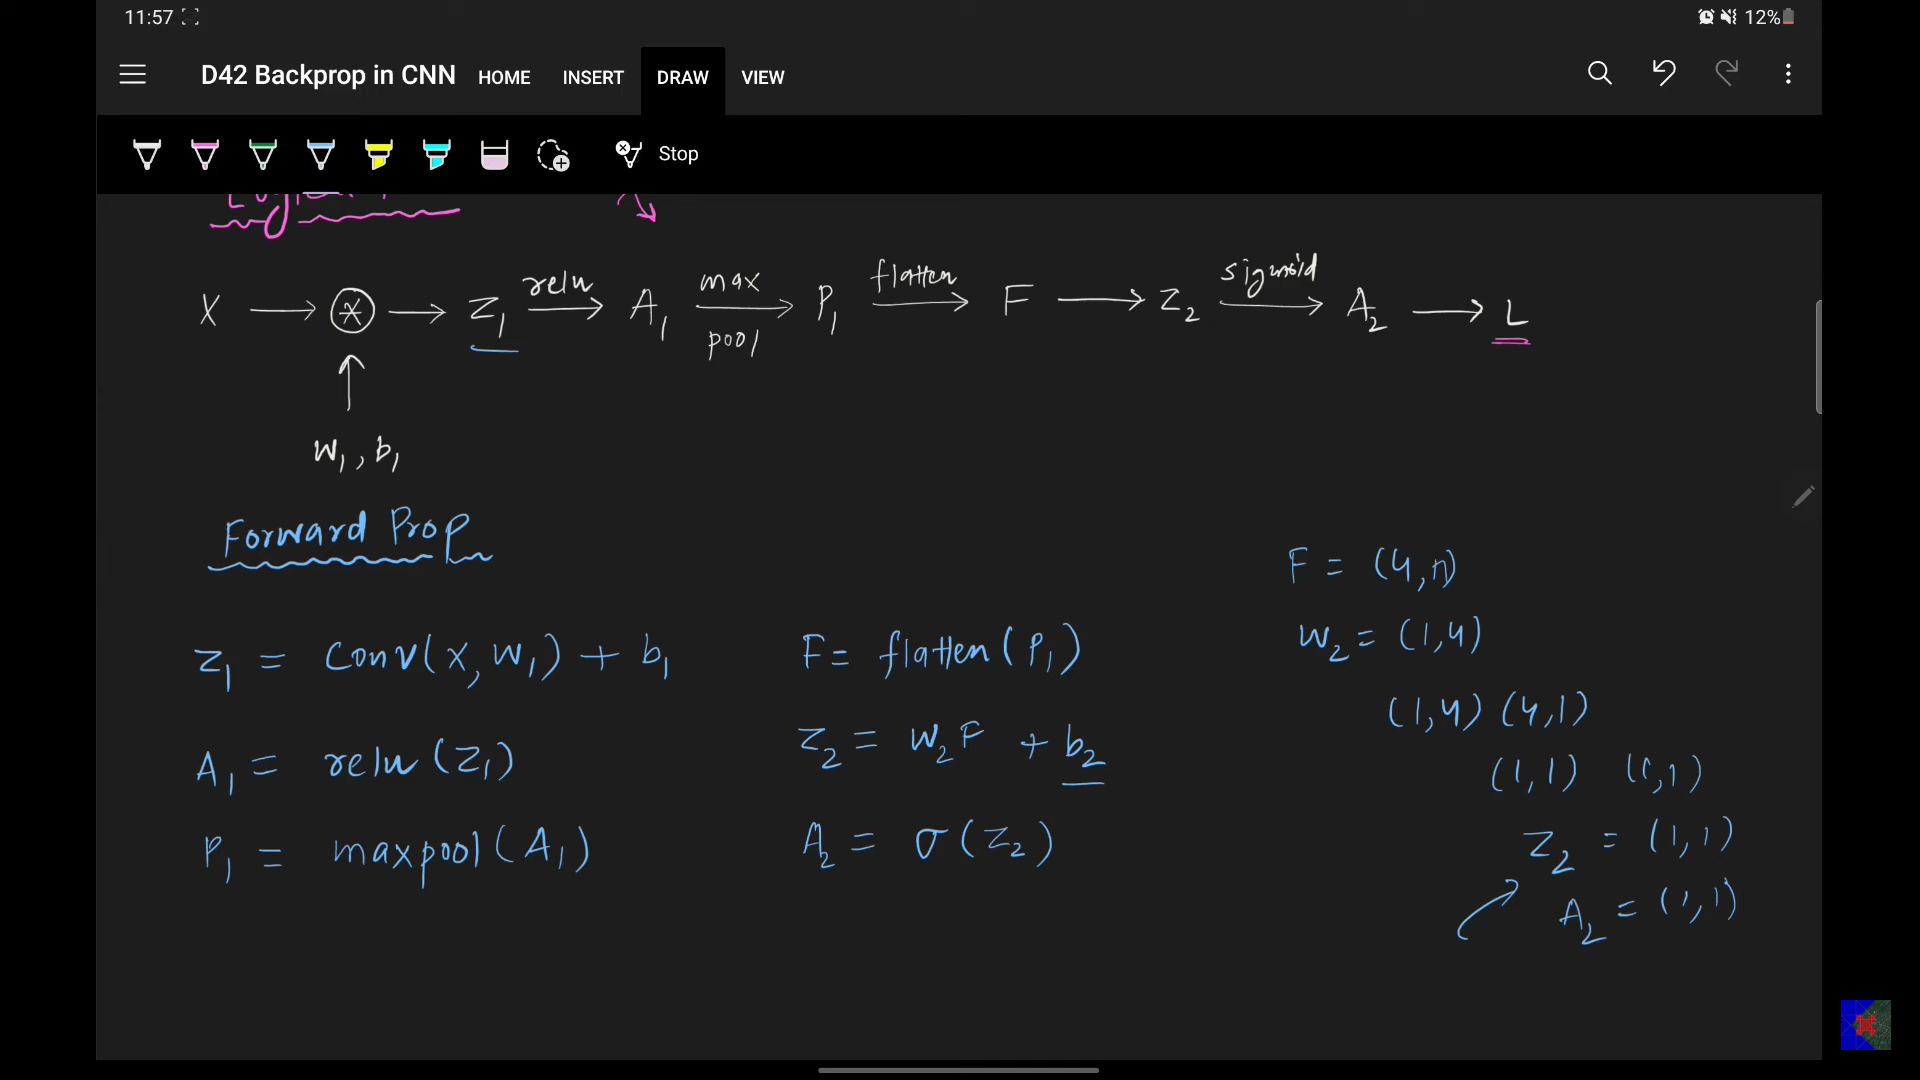 11:57 12%
D42 Backprop in CNN HOME INSERT DRAW VIEW
Stop
X → ⊛ → Z₁ relu → A₁ max pool → P₁ flatten → F → Z₂ sigmoid → A₂ → L
W₁, b₁
Forward Prop
Z₁ = conv(X, W₁) + b₁
A₁ = relu(Z₁)
P₁ = maxpool(A₁)
F = flatten(P₁)
Z₂ = W₂F + b₂
A₂ = σ(Z₂)
F = (4,1)
W₂ = (1,4)
(1,4) (4,1)
(1,1) (1,1)
Z₂ = (1,1)
A₂ = (1,1)